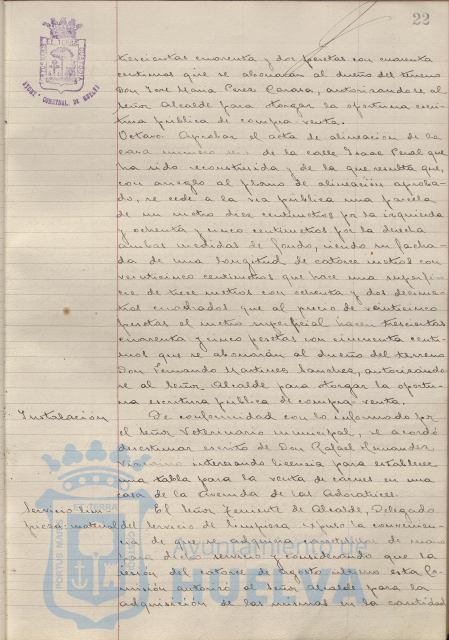 22
trescientas cuarenta y dos pesetas con cuarenta
centimos que se abonarán al dueño del terreno
Don José Maria Perez Carasa, autorizandose al
Señor Alcalde para otorgar la oportuna escri-
tura pública de compra-venta.
Octavo. Aprobar el acta de alineación de la
casa número de la calle Isaac Peral que
ha sido reconstruida y de la que resulta que,
con arreglo al plano de alineación aproba-
do, se cede a la via pública una parcela
de un metro diez centimetros por la izquierda
y ochenta y cinco centimetros por la derecha
ambas medidas de fondo, siendo su facha-
da de una longitud de catorce metros con
veinticinco centimetros que hace una superfi-
cie de trece metros con ochenta y dos decime-
tros cuadrados que al precio de veinticinco
pesetas el metro superficial hacen trescientas
cuarenta y cinco pesetas con cincuenta centi-
mos que se abonarán al dueño del terreno
Don Fernando Martinez Sanchez, autorizando-
se al Señor Alcalde para otorgar la oportu-
na escritura pública de compra-venta.
Instalación De conformidad con lo informado por
el Señor Veterinario municipal, se acordó
desestimar escrito de Don Rafael Hernandez
Vizcaino interesando licencia para establecer
una tabla para la venta de carnes en una
casa de la Avenida de las Adoratrices.
Servicio lim- El Señor Teniente de Alcalde, Delegado
pieza: material del Servicio de limpieza expuso la convenien-
cia de que se adquiera de mano
para dicho servicio y considerando que la
sesión del catorce de agosto último esta Co-
misión autorizó al Señor Alcalde para la
adquisición de las mismas en la cantidad
Ayuntamiento
HUELVA
PORTUS MARIS